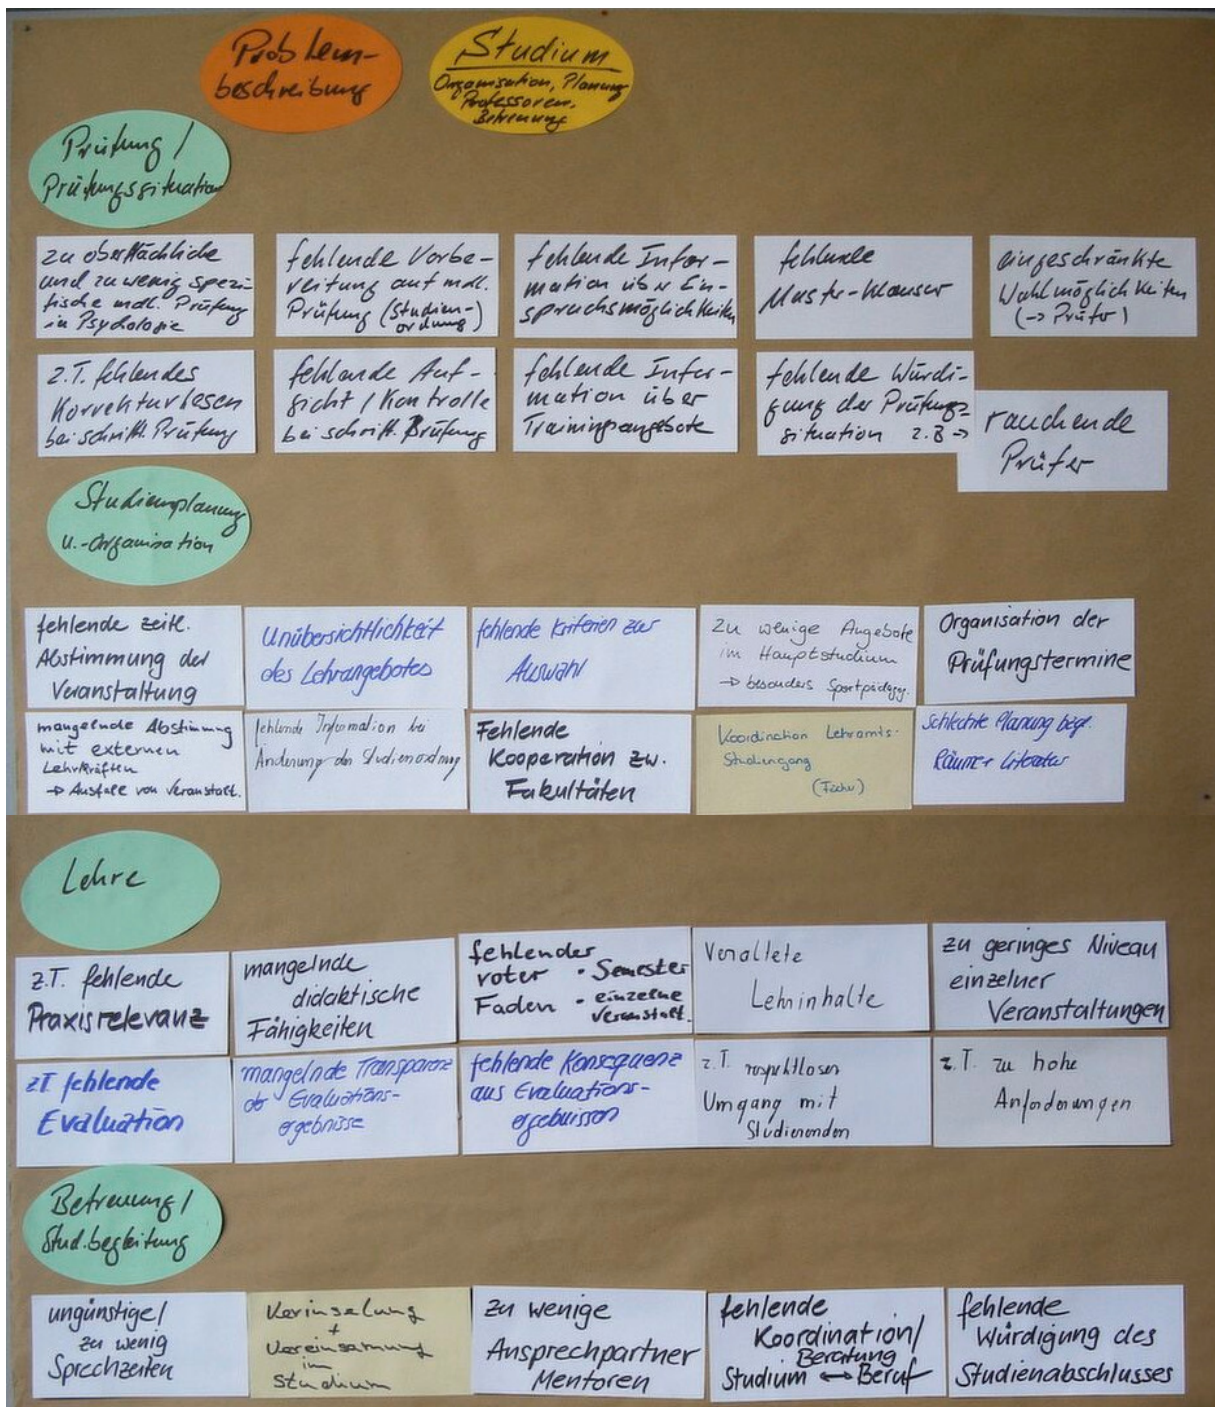 Problem-
beschreibung
Studium
Organisation, Planung
Professoren,
Betreuung
Prüfung /
Prüfungssituation
zu oberflächliche
und zu wenig spezi-
fische mdl. Prüfung
in Psychologie
fehlende Vorbe-
reitung auf mdl.
Prüfung (Studien-
ordnung)
fehlende Infor-
mation über Ein-
spruchsmöglichkeiten
fehlende
Muster-Klausur
eingeschränkte
Wahlmöglichkeiten
(-> Prüfer)
z.T. fehlendes
Korrekturlesen
bei schriftl. Prüfung
fehlende Auf-
sicht / Kontrolle
bei schriftl. Prüfung
fehlende Infor-
mation über
Trainingsangebote
fehlende Würdi-
gung der Prüfungs-
situation z.B ->
rauchende
Prüfer
Studienplanung
u.-Organisation
fehlende zeitl.
Abstimmung der
Veranstaltung
Unübersichtlichkeit
des Lehrangebotes
fehlende Kriterien zur
Auswahl
Zu wenige Angebote
im Hauptstudium
-> besonders Sportpädagog.
Organisation der
Prüfungstermine
mangelnde Abstimmung
mit externen
Lehrkräften
-> Ausfälle von Veranstalt.
fehlende Information bei
Änderung der Studienordnung
Fehlende
Kooperation zw.
Fakultäten
Koordination Lehramts-
Studiengang
(Fächer)
Schlechte Planung bzgl.
Räume + Literatur
Lehre
z.T. fehlende
Praxisrelevanz
mangelnde
didaktische
Fähigkeiten
fehlender
roter • Semester
Faden • einzelne
Veranstalt.
Veraltete
Lehrinhalte
zu geringes Niveau
einzelner
Veranstaltungen
z.T. fehlende
Evaluation
mangelnde Transparenz
der Evaluations-
ergebnisse
fehlende Konsequenz
aus Evaluations-
ergebnissen
z.T. respektloser
Umgang mit
Studierenden
z.T. zu hohe
Anforderungen
Betreuung /
Stud.begleitung
ungünstige /
zu wenig
Sprechzeiten
Verinselung
+
Vereinsamung
im
Studium
zu wenige
Ansprechpartner
Mentoren
fehlende
Koordination/
Beratung
Studium <-> Beruf
fehlende
Würdigung des
Studienabschlusses